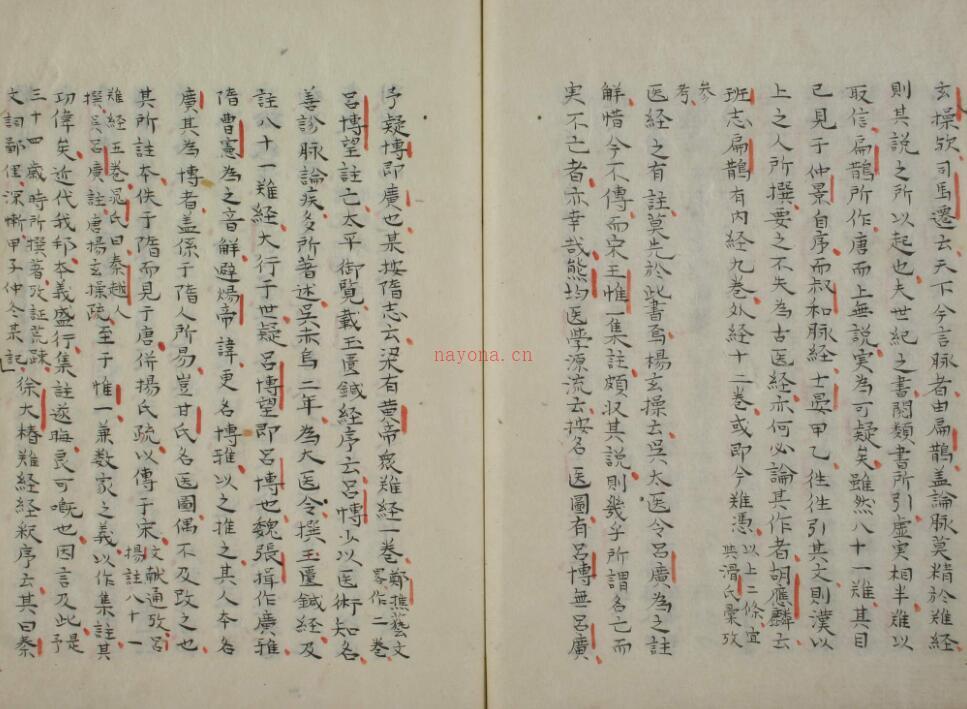 玄操欤司馬遷云天下今言脉者由扁鵲盖論脉莫精於難経
則其説之所以起也夫世紀之書閣類書所引虚実相半難以
取信扁鵲所作唐而上無説実為可疑矣雖然八十一難其目
已見于仲景自序而叔和脉経士晏甲乙往往引其文則漢以
上之人所撰要之不失為古医経亦何必論其作者胡應麟云
班志扁鵲有内経九巻外経十二巻或即今難憑以上二條宜
共滑氏彙攷
参
考
医経之有註莫先於此書焉楊玄操云呉太医令呂廣為之註
解惜今不傳而宋王惟一集註頗収其説則幾乎所謂名亡而
実不亡者亦幸哉熊均医学源流云按名医圖有呂博無呂廣
予疑博即廣也某按隋志云梁有黄帝衆難経一巻鄭樵藝文
畧作二巻
呂博望註亡太平御覧載玉匱鍼経序云呂博少以医術知名
善診脉論疾多所著述呉赤烏二年為大医令撰玉匱鍼経及
註八十一難経大行于世疑呂博望即呂博也魏張揖作廣雅
隋曹憲為之音解避煬帝諱更名博雅以之推之其人本名
廣其為博者盖係于隋人所易豈甘氏名医圖偶不及改之也
其所註本佚于隋而見于唐併楊氏疏以傳于宋文献通攷呂
楊註八十一
難経五巻晁氏曰秦越人
撰呉呂廣註唐楊玄操疏至于惟一兼数家之義以作集註其
功偉矣近代我邦本義盛行集註遂晦良可嘅也因言及此是予
三十四歳時所撰著攷証荒踈
文詞鄙俚深慚甲子仲冬某記徐大椿難経経釈序云其曰秦
nayona.cn